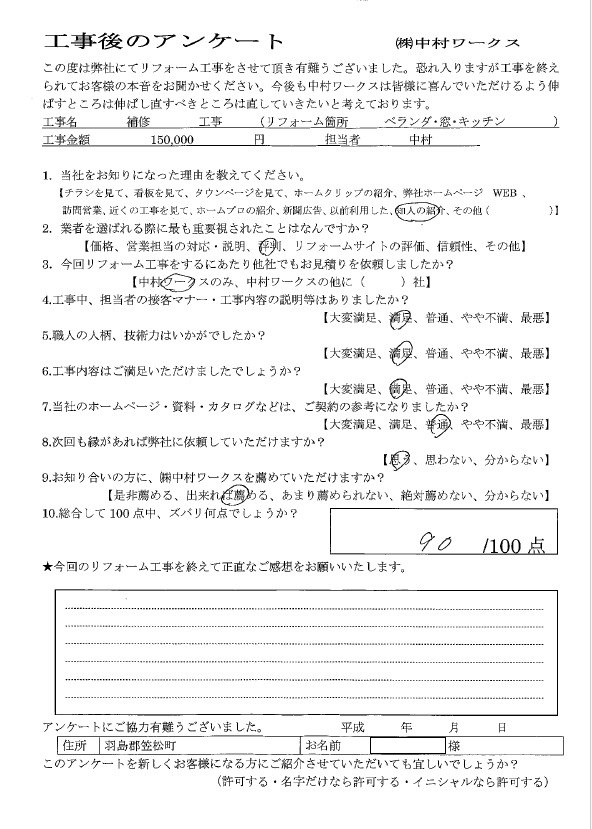 工事後のアンケート ㈱中村ワークス
この度は弊社にてリフォーム工事をさせて頂き有難うございました。恐れ入りますが工事を終え
られてお客様の本音をお聞かせください。今後も中村ワークスは皆様に喜んでいただけるよう伸
ばすところは伸ばし直すべきところは直していきたいと考えております。
工事名 補修 工事 （リフォーム箇所 ベランダ・窓・キッチン ）
工事金額 150,000 円 担当者 中村
1．当社をお知りになった理由を教えてください。
【チラシを見て、看板を見て、タウンページを見て、ホームクリップの紹介、弊社ホームページ WEB 、
訪問営業、近くの工事を見て、ホームプロの紹介、新聞広告、以前利用した、知人の紹介、その他（ ）】
2．業者を選ばれる際に最も重要視されたことはなんですか？
【価格、営業担当の対応・説明、評判、リフォームサイトの評価、信頼性、その他】
3．今回リフォーム工事をするにあたり他社でもお見積りを依頼しましたか？
【中村ワークスのみ、中村ワークスの他に（ ）社】
4.工事中、担当者の接客マナー・工事内容の説明等はありましたか？
【大変満足、満足、普通、やや不満、最悪】
5.職人の人柄、技術力はいかがでしたか？
【大変満足、満足、普通、やや不満、最悪】
6.工事内容はご満足いただけましたでしょうか？
【大変満足、満足、普通、やや不満、最悪】
7.当社のホームページ・資料・カタログなどは、ご契約の参考になりましたか？
【大変満足、満足、普通、やや不満、最悪】
8.次回も縁があれば弊社に依頼していただけますか？
【思う、思わない、分からない】
9.お知り合いの方に、㈱中村ワークスを薦めていただけますか？
【是非薦める、出来れば薦める、あまり薦められない、絶対薦めない、分からない】
10.総合して100点中、ズバリ何点でしょうか？
90 /100点
★今回のリフォーム工事を終えて正直なご感想をお願いいたします。
アンケートにご協力有難うございました。 平成 年 月 日
住所 羽島郡笠松町 お名前 様
このアンケートを新しくお客様になる方にご紹介させていただいても宜しいでしょうか？
（許可する・名字だけなら許可する・イニシャルなら許可する）